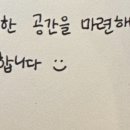 한 공간을 마련해
합니다